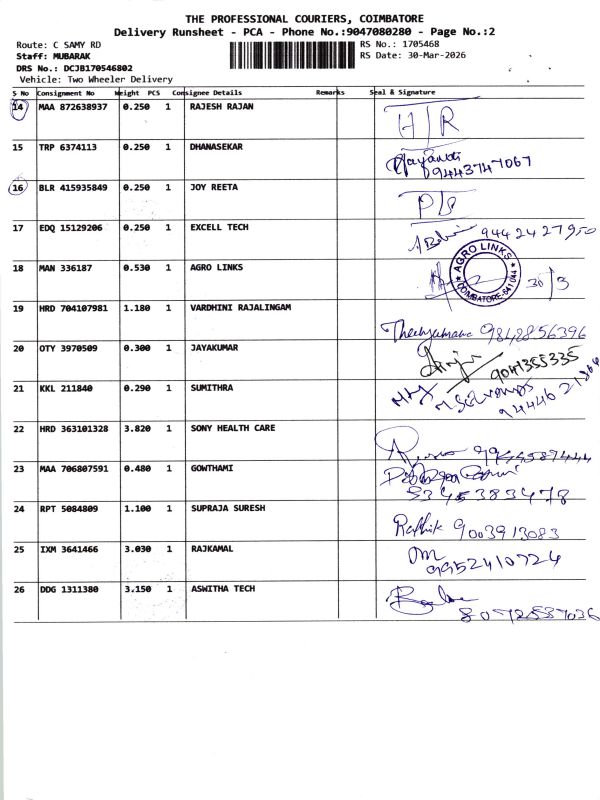 THE PROFESSIONAL COURIERS, COIMBATORE
Delivery Runsheet - PCA - Phone No.:9047080280 - Page No.:2
Route: C SAMY RD RS No.: 1705468
Staff: MUBARAK RS Date: 30-Mar-2026
DRS No.: DCJB170546802
Vehicle: Two Wheeler Delivery
S No Consignment No Weight PCS Consignee Details Remarks Seal & Signature
14 MAA 872638937 0.250 1 RAJESH RAJAN
H/R
15 TRP 6374113 0.250 1 DHANASEKAR
09443747067
16 BLR 415935849 0.250 1 JOY REETA
17 EDQ 15129206 0.250 1 EXCELL TECH
9442427950
18 MAN 336187 0.530 1 AGRO LINKS
★ AGRO LINKS ★ COIMBATORE-641044
30/3
19 HRD 704107981 1.180 1 VARDHINI RAJALINGAM
9842856396
20 OTY 3970509 0.300 1 JAYAKUMAR
9041355335
21 KKL 211840 0.290 1 SUMITHRA
22 HRD 363101328 3.820 1 SONY HEALTH CARE
23 MAA 706807591 0.480 1 GOWTHAMI
9345383478
24 RPT 5084809 1.100 1 SUPRAJA SURESH
Rathik 9003913083
25 IXM 3641466 3.030 1 RAJKAMAL
9952410724
26 DDG 1311380 3.150 1 ASWITHA TECH